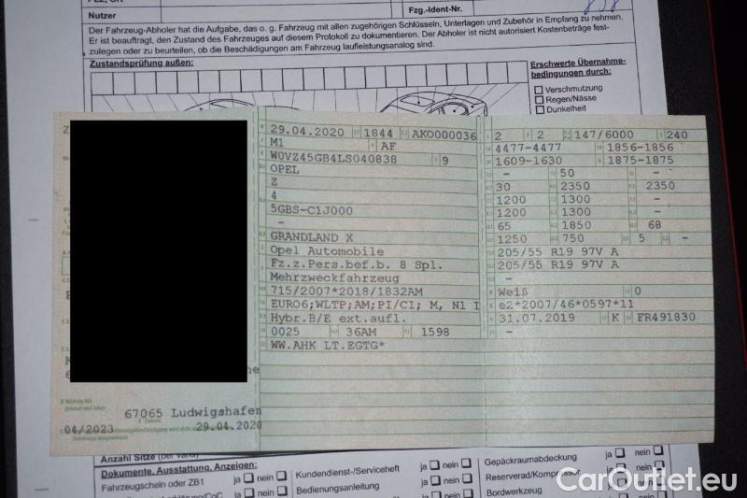 Nutzer
Fzg.-Ident-Nr.
Der Fahrzeug-Abholer hat die Aufgabe, das o. g. Fahrzeug mit allen zugehörigen Schlüsseln, Unterlagen und Zubehör in Empfang zu nehmen.
Er ist beauftragt, den Stand des Fahrzeuges auf diesem Protokoll zu dokumentieren. Der Abholer ist nicht autorisiert Kostenbeträge fest-
zulegen oder zu beurteilen, ob die Beschädigungen am Fahrzeug laufleistungsanalog sind.
Zustandsprüfung außen:
Erschwerte Übernahme-
bedingungen durch:
Verschmutzung
Regen/Nässe
Dunkelheit
29.04.2020 1844 AKO000036 2 2 147/6000 240
M1 AF 4477-4477 1856-1856
W0VZ45GB4LS040838 9 1609-1630 1875-1875
OPEL - 50 -
Z 30 2350 2350
4 1200 1300 -
5GBS-C1J000 1200 1300 -
- 65 1850 68
GRANDLAND X 1250 750 5 -
Opel Automobile 205/55 R19 97V A
Fz.z.Pers.bef.b. 8 Spl. 205/55 R19 97V A
Mehrzweckfahrzeug -
715/2007*2018/1832AM Weiß 0
EURO6;WLTP;AM;PI/CI; M, N1 I e2*2007/46*0597*11
Hybr.B/E ext.aufl. 31.07.2019 K FR491830
0025 36AM 1598 -
WW.AHK LT.EGTG*
67065 Ludwigshafen
04/2023 29.04.2020
Anzahl Sitze
Dokumente, Ausstattung, Anzeigen:
Fahrzeugschein oder ZB1 ja nein
Kundendienst-/Serviceheft ja nein
Bedienungsanleitung ja nein
Gepäckraumabdeckung ja nein
Reserverad/Kompressor
Bordwerkzeug
CarOutlet.eu